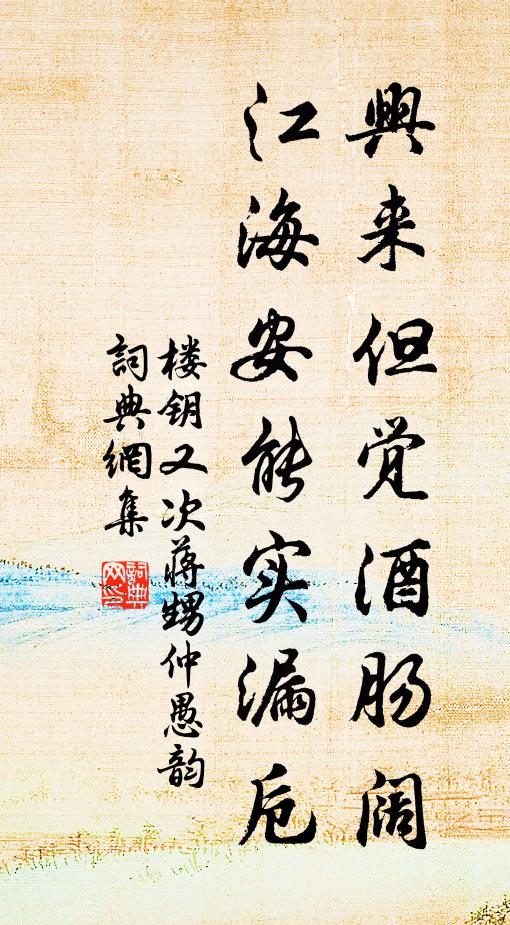 興来但觉酒肠阔
江海安能实漏卮
楼钥又次蒋甥仲愚韵
詞典網集